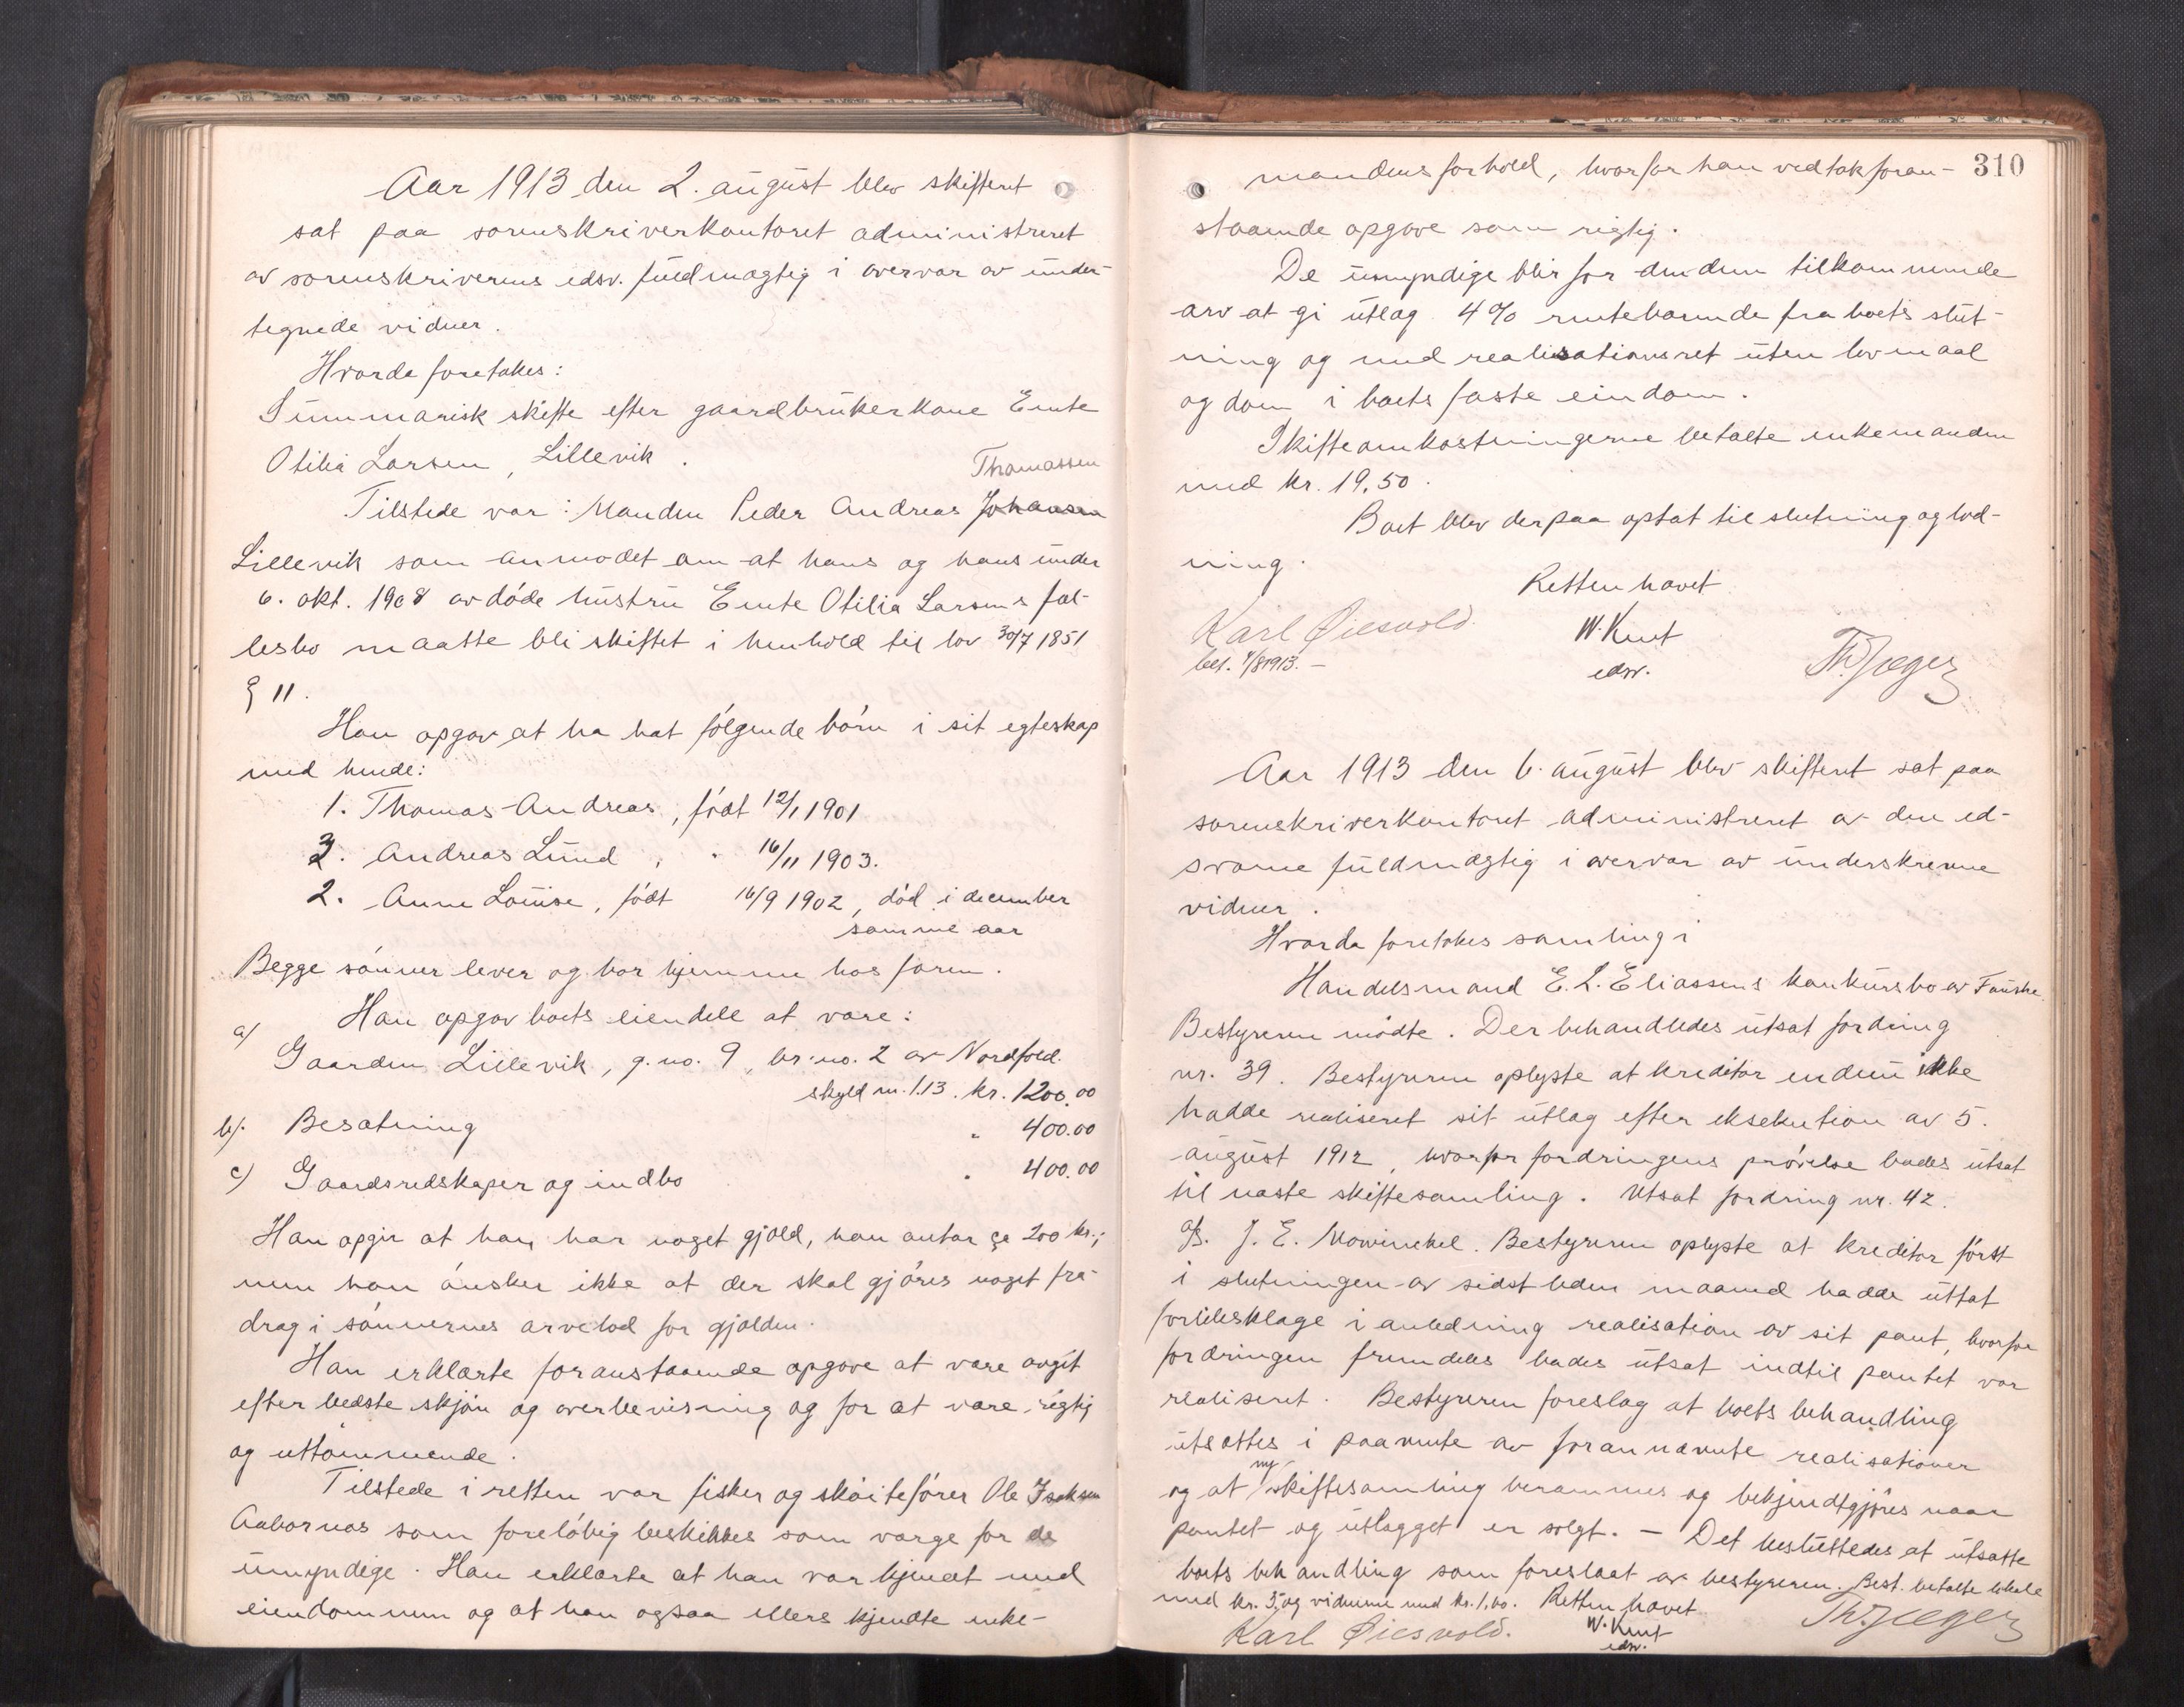 Aar 1913 den 2. august blev skifteret
sat paa sorenskriverkontoret administreret
av sorenskriverens edsv. fuldmægtig i overvær av under-
tegnede vidner.
Hvorda foretokes:
Summarisk skifte efter gaardbrukerkone Ernte
Otilia Larsen, Lillevik.
Thomassen
Tilstede var: Manden Peder Andreas Johansen
Lillevik som anmodet om at hans og hans under
6. okt. 1908 avdøde hustru Ernte Otilia Larsens fæl-
lesbo maatte bli skiftet i henhold til lov 30/7 1851
§ 11.
Han opgav at ha hat følgende børn i sit egteskap
med hende:
1. Thomas Andreas, født 12/1 1901
3. Andreas Lund, " 16/11 1903.
2. Anne Louise, født 16/9 1902, død i december
samme aar
Begge sønner lever og bor hjemme hos faren.
Han opgav boets eiendele at være:
a) Gaarden Lillevik, g. no. 9, br. no. 2 av Nordfold.
skyld m. 1.13. kr. 1200.00
b). Besætning " 400.00
c) Gaardsredskaper og indbo " 400.00
Han opgir at han har noget gjæld, han antar ca 200 kr.;
men han ønsker ikke at der skal gjøres noget fra-
drag i sønnernes arvelod for gjælden.
Han erklærte foranstaaende opgave at være avgit
efter bedste skjøn og overbevisning og for at være rigtig
og uttømmende.
Tilstede i retten var fisker og skøitefører Ole Isaksen
Aabornæs som foreløbig beskikkes som værge for de
umyndige. Han erklærte at han var kjendt med
eiendommen og at han ogsaa ellers kjendte enke-
310
mandens forhold, hvorfor han vedtok foran-
staaende opgave som rigtig.
De umyndige blir for den dem tilkommende
arv at gi utlæg 4% rentebærende fra boets slut-
ning og med realisationsret uten lovmaal
og dom i boets faste eiendom.
Skifteomkostningerne betalte enkemanden
med kr. 19.50.
Boet blev derpaa optat til slutning og lod-
ning.
Retten hævet
Karl Øiesvold. W. Knut Th. Jæger
bet. 4/8 1913. - edsv.
Aar 1913 den 6. august blev skifteret sat paa
sorenskriverkontoret administreret av den ed-
svorne fuldmægtig i overvær av underskrevne
vidner.
Hvorda foretokes samling i
Handelsmand E. L. Eliassens konkursbo av Fauske.
Bestyreren mødte. Der behandledes utsat fordring
nr. 39. Bestyreren oplyste at kreditor endnu ikke
hadde realiseret sit utlæg efter eksekution av 5.
august 1912, hvorfor fordringens prøvelse bades utsat
til næste skiftesamling. Utsat fordring nr. 42.
A/S. J. E. Mowinckel. Bestyreren oplyste at kreditor først
i slutningen av sidstleden maaned hadde uttat
forliksklage i anledning realisation av sit pant, hvorfor
fordringen fremdeles bades utsat indtil pantet var
realiseret. Bestyreren foreslog at boets behandling
utsættes i paavente av forannævnte realisationer
og at ny skiftesamling berammes og bekjendtgjøres naar
pantet og utlægget er solgt. - Det besluttedes at utsætte
boets behandling som foreslaat av bestyreren. Best. betalte lokale
med kr. 5, og vidnerne med kr. 1,60. Retten hævet
Karl Øiesvold. W. Knut Th. Jæger
edsv.